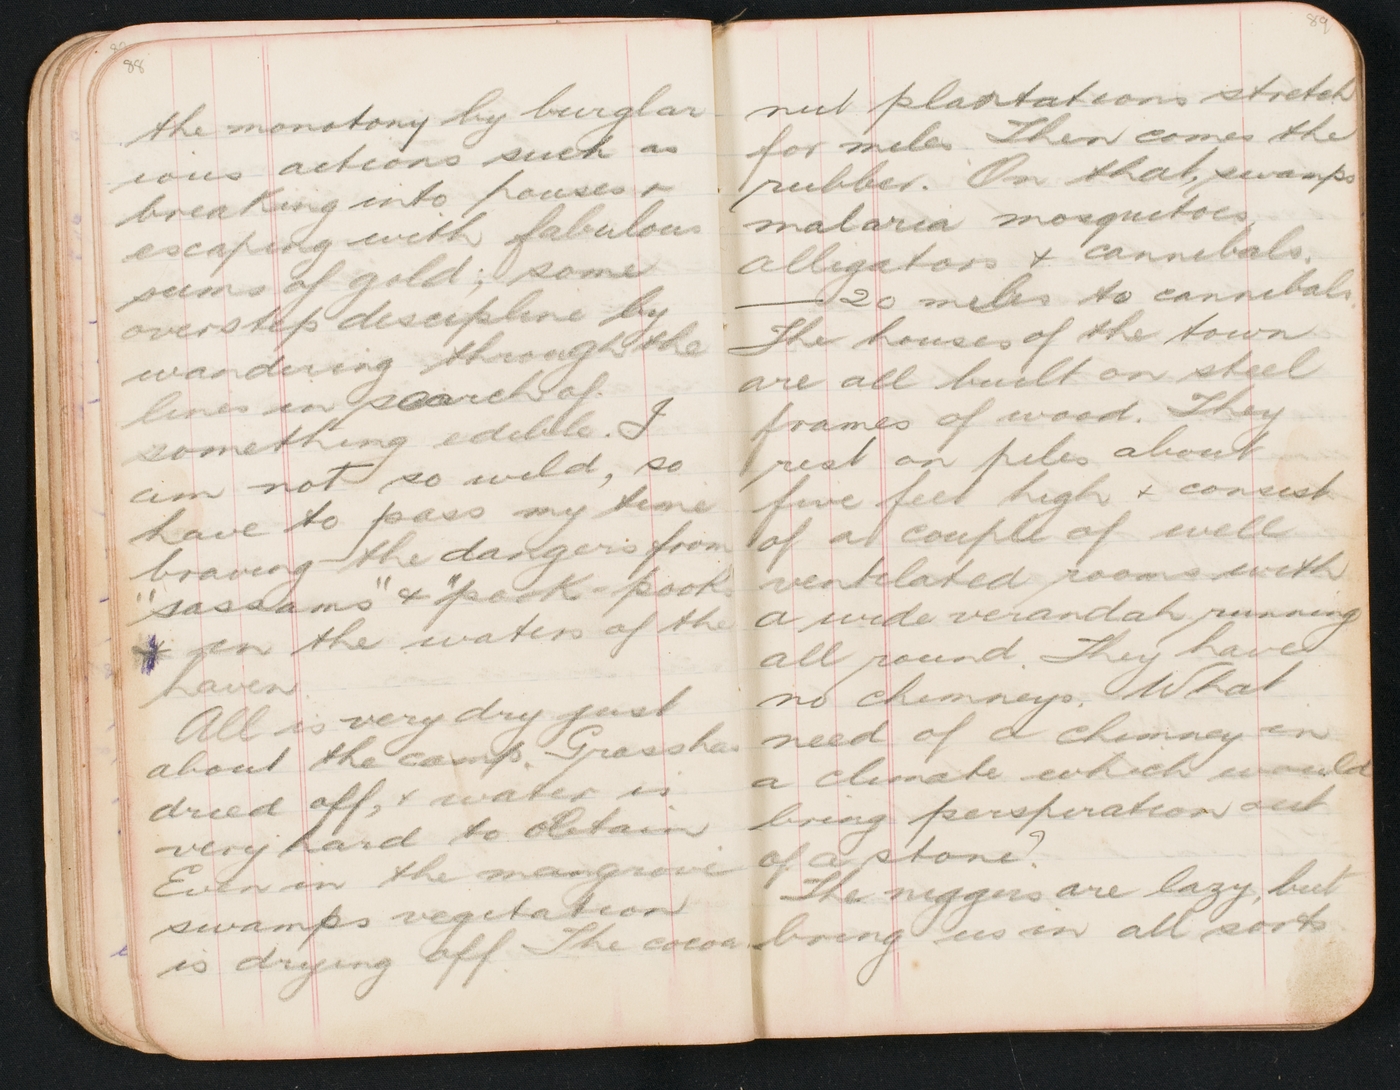 88
the monotony by burglar
ious actions such as
breaking into houses &
escaping with fabulous
sums of gold; some
overstep discipline by
wandering through the
lines in search of
something edible. I
am not so wild, so
have to pass my time
braving the dangers from
"sassams" & "pook-pooks
* in the waters of the
haven.
All is very dry just
about the camp. Grass has
dried off, & water is
very hard to obtain
Even in the mangrove
swamps vegetation
is drying off. The cocoa
89
nut plantations stretch
for miles. Then comes the
rubber. On that, swamps
malaria mosquitoes,
alligators & cannibals.
— 20 miles to cannibals.
The houses of the town
are all built on steel
frames of wood. They
rest on piles about
five feet high & consist
of a couple of well
ventilated rooms with
a wide verandah running
all round. They have
no chimneys. What
need of a chimney in
a climate which would
bring perspiration out
of a stone?
The niggers are lazy, but
bring us in all sorts